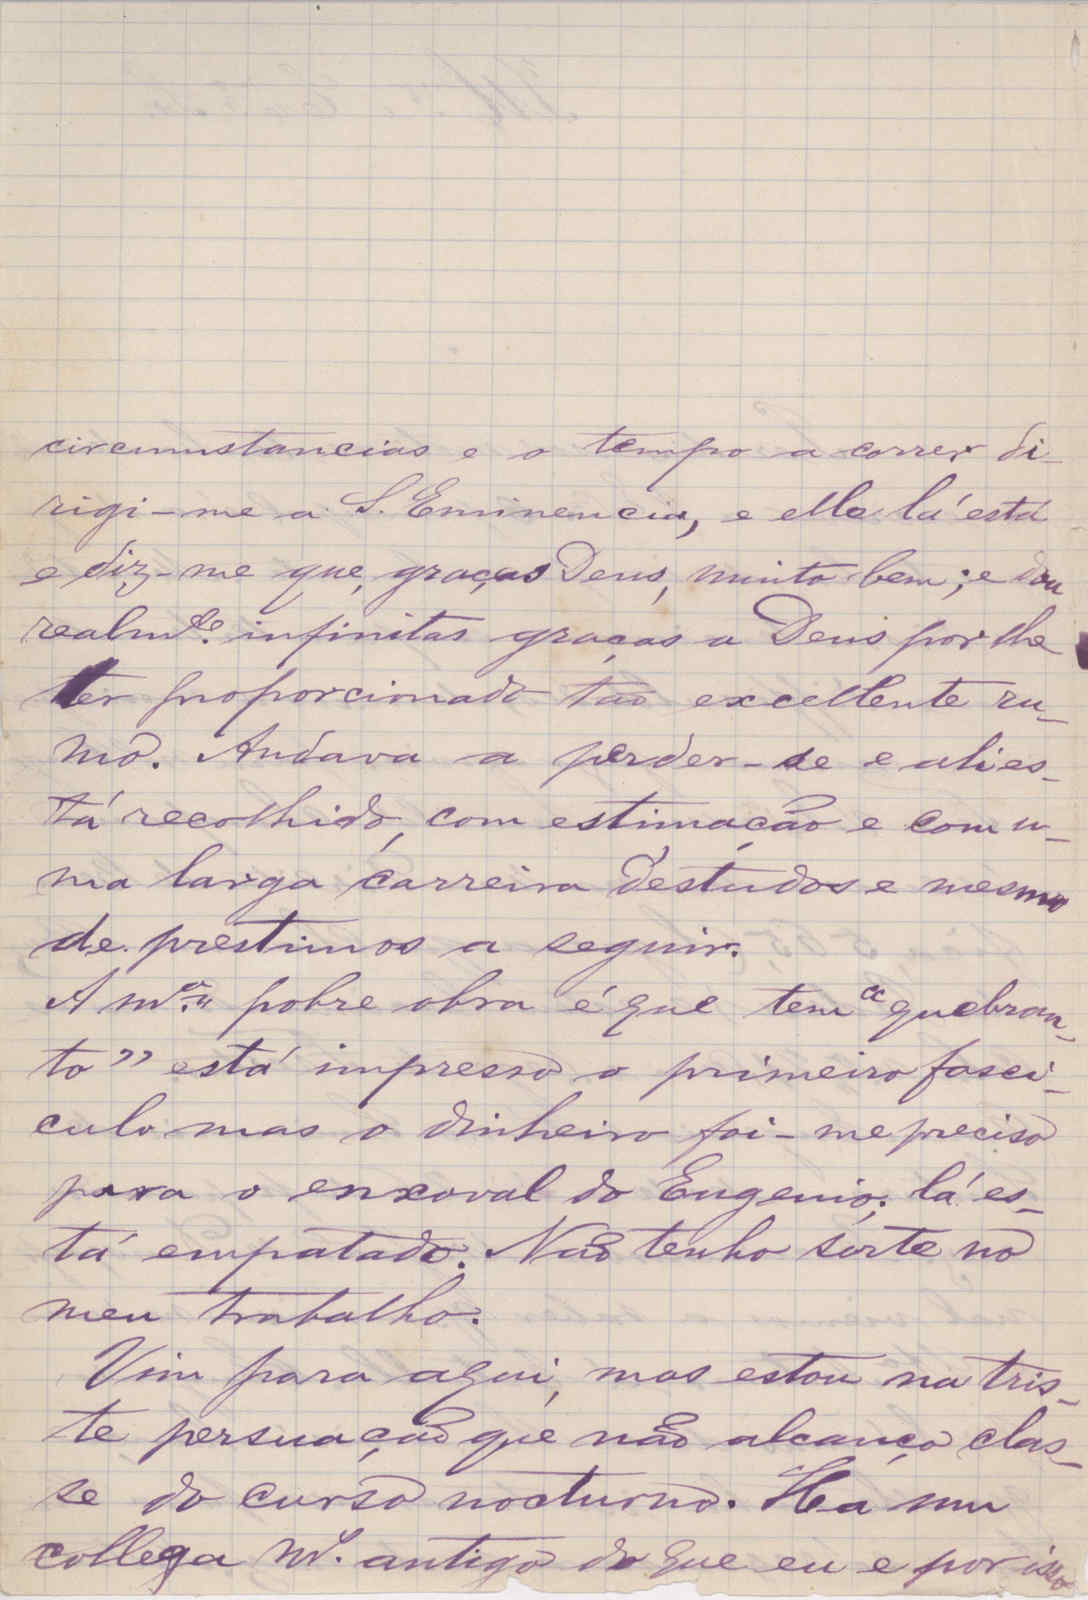 circumstancias e o tempo a correr di-
rigi-me a S. Eminencia, e elle lá está
e diz-me que, graças Deus, muito bem; e dou
realmte. infinitas graças a Deus por lhe
ter proporcionado tão excellente ru-
mo. Andava a perder-se e ali es-
tá recolhido, com estimação e com u-
ma larga carreira d'estudos e mesmo
de prestimos a seguir.
A ma. pobre obra é que tem "quebran-
to" está impresso o primeiro fasci-
culo mas o dinheiro foi-me preciso
para o enxoval do Eugenio; lá es-
tá empatado. Não tenho sorte no
meu trabalho.
Vim para aqui, mas estou na tris-
te persuação que não alcanço clas-
se do curso nocturno. Ha um
collega m. antigo do que eu e por isso